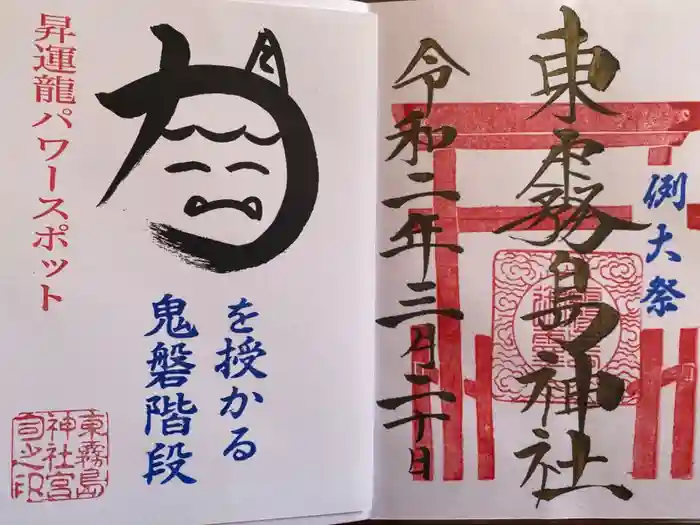 例大祭
東霧島神社
令和二年三月二十日
力
を授かる
鬼磐階段
昇運龍パワースポット
東霧島
神社宮